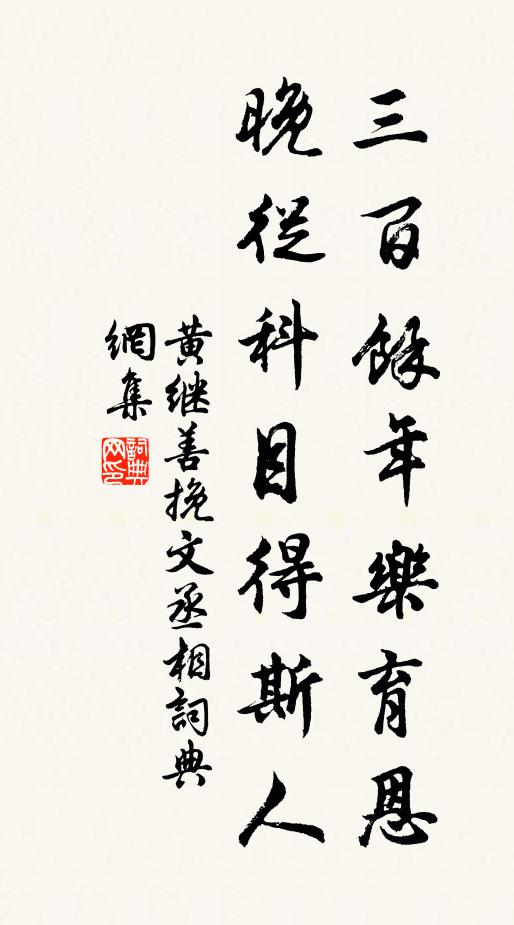 三百餘年樂育恩
晚從科目得斯人
黃继善挽文丞相詞典
網集
詞典網印